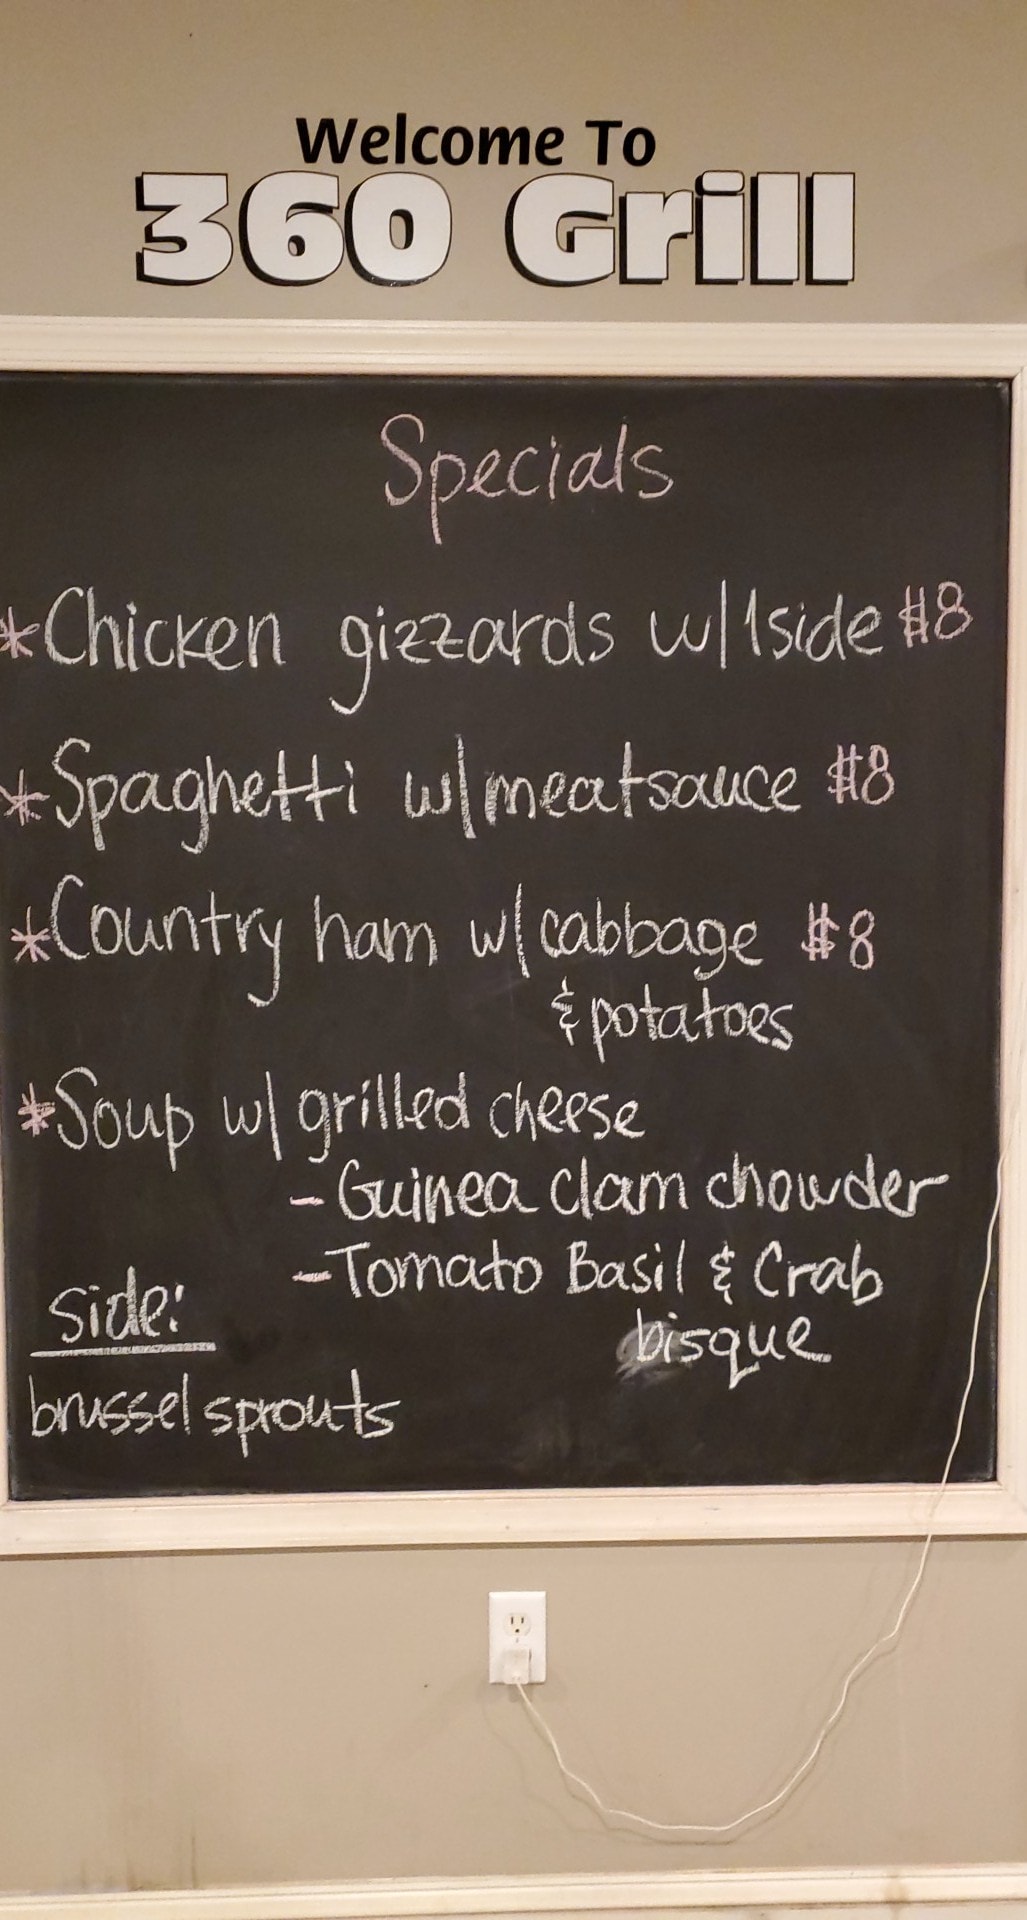 Welcome To
360 Grill
Specials
*Chicken gizzards w/1side $8
*Spaghetti w/meatsauce $8
*Country ham w/cabbage $8
& potatoes
*Soup w/ grilled cheese
- Guinea clam chowder
- Tomato Basil & Crab
bisque
side:
brussel sprouts